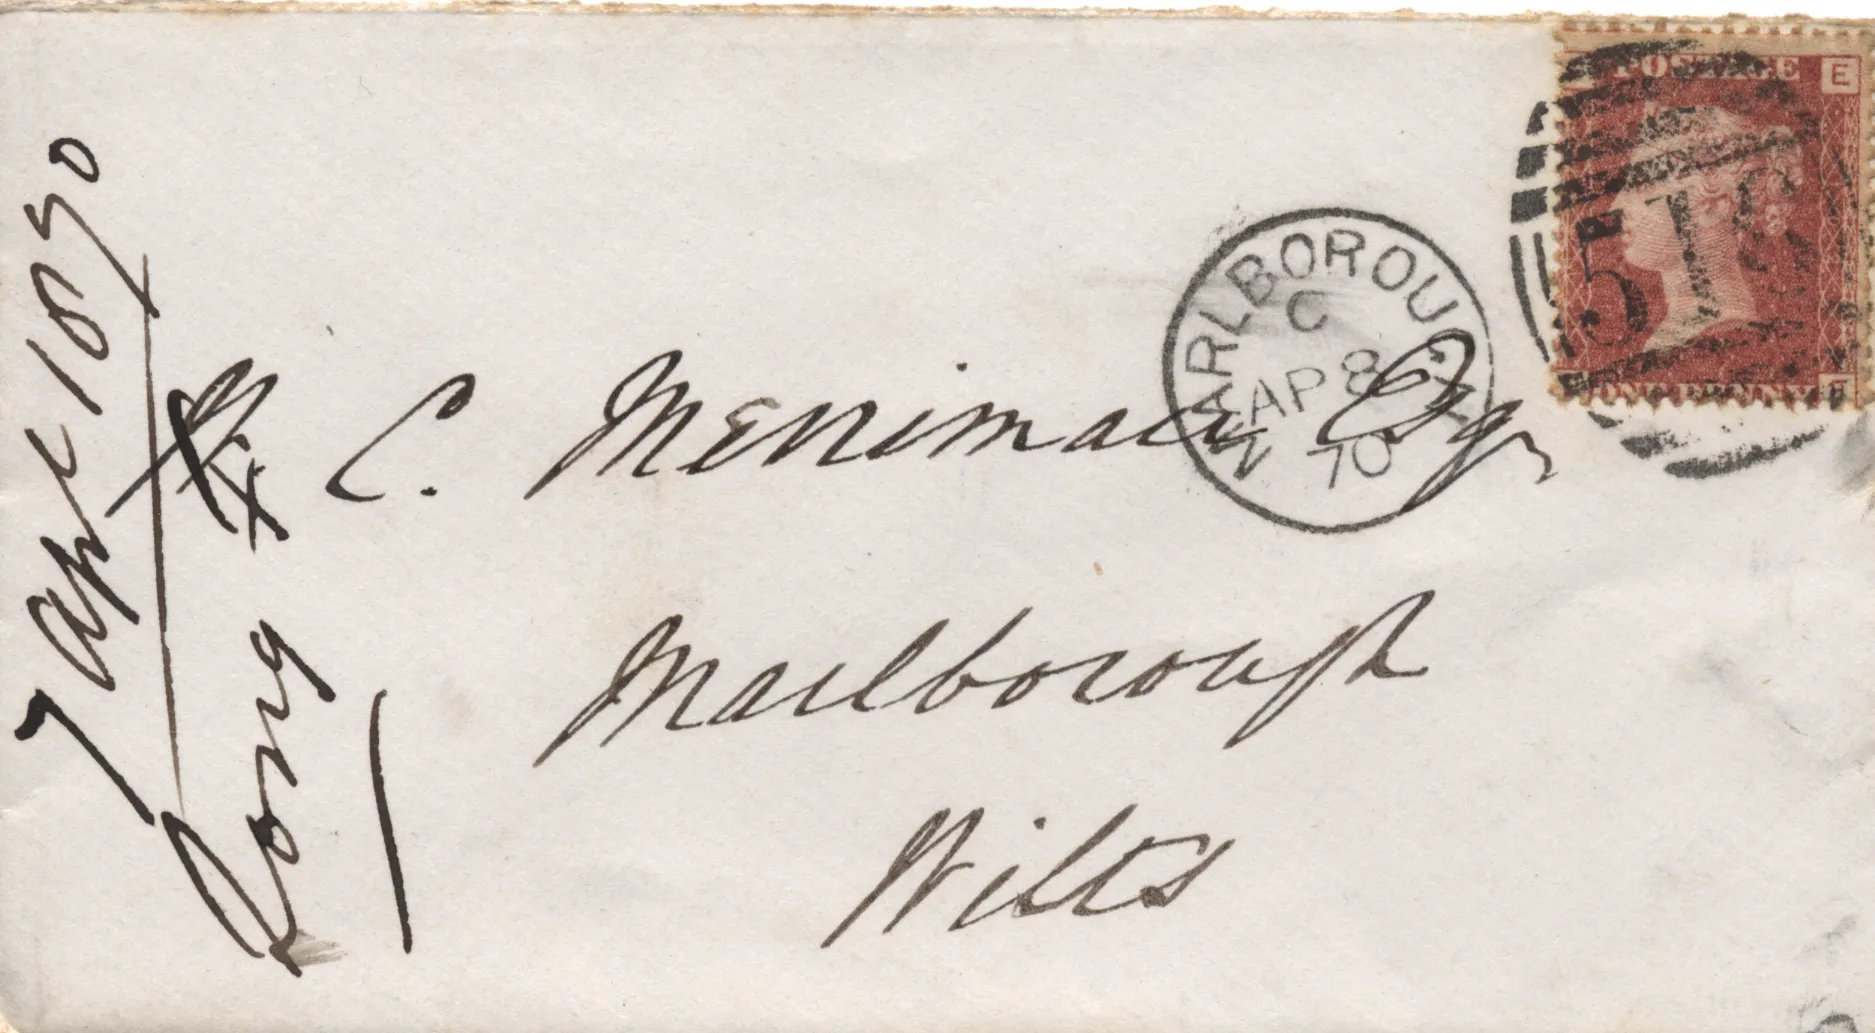 7 April 1870
Long
C. Merriman Esqr
Marlborough
Wilts
MARLBOROUGH
C
AP 8
70
POSTAGE
E
ONE PENNY
51